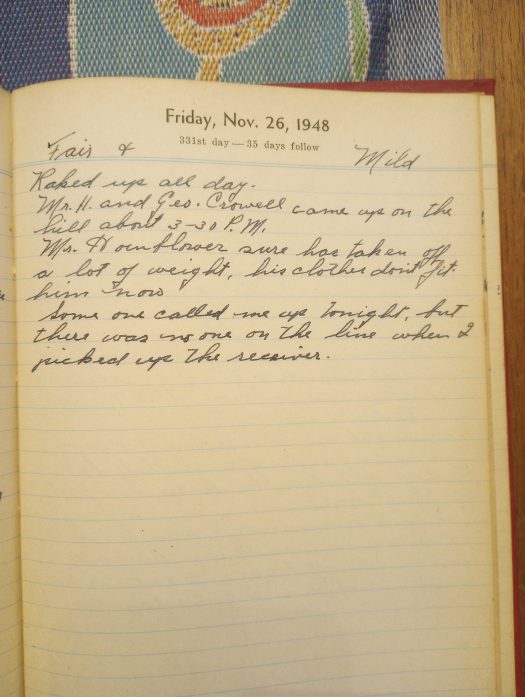 Friday, Nov. 26, 1948
331st day—35 days follow
Fair & Mild
Raked up all day.
Mr. H. and Geo. Crowell came up on the
hill about 3-30 P.M.
Mr. Hornblower sure has taken off
a lot of weight, his clothes don't fit
him now
some one called me up tonight, but
there was no one on the line when I
picked up the receiver.